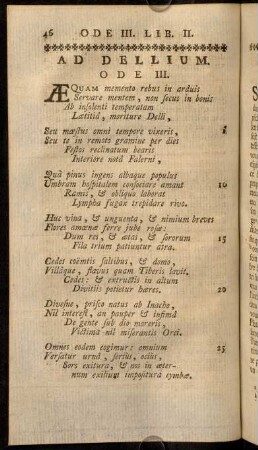 46 ODE III. LIB. II.
AD DELLIUM.
ODE III.
ÆQUAM memento rebus in arduis
Servare mentem, non secus in bonis
Ab insolenti temperatam
Lætitiâ, moriture Delli,
Seu mæstus omni tempore vixeris, 5
Seu te in remoto gramine per dies
Festos reclinatum bearis
Interiore notâ Falerni,
Quâ pinus ingens albaque populus
Umbram hospitalem consociare amant 10
Ramis, & obliquo laborat
Lympha fugax trepidare rivo.
Huc vina, & unguenta, & nimium breves
Flores amœnæ ferre jube rosæ:
Dum res, & ætas, & sororum 15
Fila trium patiuntur atra.
Cedes coëmtis saltibus, & domo,
Villâque, flavus quam Tiberis lavit,
Cedes: & extructis in altum
Divitiis potietur hæres. 20
Divesne, prisco natus ab Inacho,
Nil interest, an pauper & infimâ
De gente sub dio moreris,
Victima nil miserantis Orci.
Omnes eodem cogimur: omnium 25
Versatur urnâ, serius, ocius,
Sors exitura, & nos in æter-
num exilium impositura cymbæ.